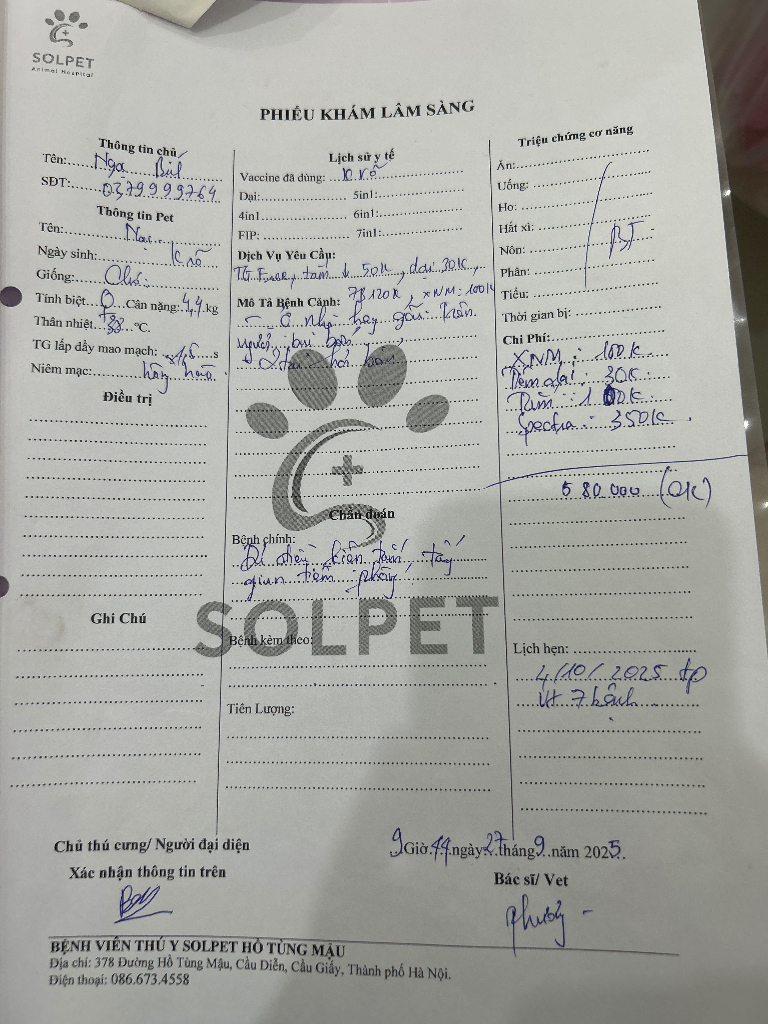 SOLPET
Animal Hospital
PHIẾU KHÁM LÂM SÀNG
Thông tin chủ
Tên: Nga
SĐT: 0379999764
Thông tin Pet
Tên:
Ngày sinh: k rõ
Giống: Chó
Tính biệt: Cân nặng: 4,4 kg
Thân nhiệt: 38 °C.
TG lấp đầy mao mạch: s
Niêm mạc: hồng hào
Điều trị
Ghi Chú
Lịch sử y tế
Vaccine đã dùng: k rõ
Dại: 5in1:
4in1 6in1:
FIP: 7in1:
Dịch Vụ Yêu Cầu:
TG Free, tắm ↓ 50K, dại 30K,
Mô Tả Bệnh Cảnh: 7B 120K, XNM: 100K
- Ở nhà hay gãi trên
người
Chẩn đoán
Bệnh chính:
tẩy
gian tiêm phòng
SOLPET
Bệnh kèm theo:
Tiên Lượng:
Triệu chứng cơ năng
Ăn:
Uống:
Ho:
Hắt xì:
Nôn: BT
Phân:
Tiểu:
Thời gian bị:
Chi Phí:
XNM: 100K
Tiêm dại: 30K
Tắm: 100K
Spectra: 350K
580000 (OK)
Lịch hẹn:
4/10/2025 tp
7 bệnh
Chủ thú cưng/ Người đại diện
Xác nhận thông tin trên
9 Giờ 44 ngày 27 tháng 9 năm 2025.
Bác sĩ/ Vet
BỆNH VIỆN THÚ Y SOLPET HỒ TÙNG MẬU
Địa chỉ: 378 Đường Hồ Tùng Mậu, Cầu Diễn, Cầu Giấy, Thành phố Hà Nội.
Điện thoại: 086.673.4558